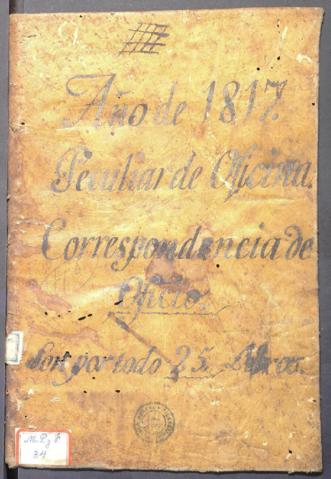 Año de 1817.
Peculiar de Oficina.
Correspondencia de
Oficio.
Son por todo 25 Libros.
34